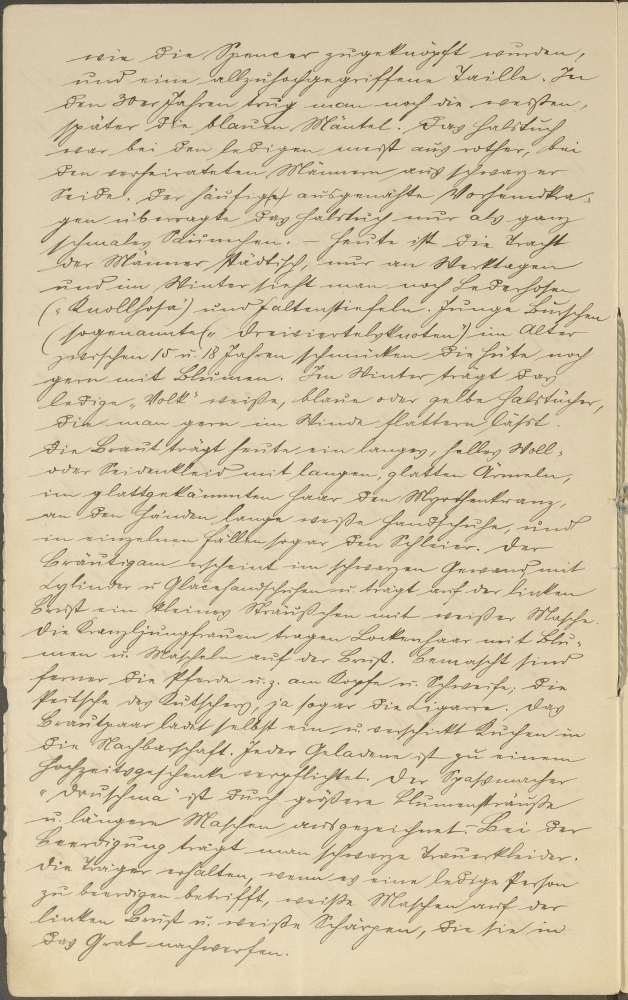 wie die Spencer zugeknöpft wurden,
und eine allzuhochgegriffene Taille. In
den 30er Jahren trug man noch die weißen,
später die blauen Mäntel. Das Halstuch
war bei den ledigen meist aus rother, bei
den verheirateten Männern aus schwarzer
Seide. Der häufig(e) ausgenähte Vorhemdkra-
gen überragte das Halstuch nur als ganz
schmales Säumchen. – Heute ist die Tracht
der Männer städtisch, nur an Werktagen
und im Winter sieht man noch Lederhosen
("Knollhosa") und Faltenstiefeln. Junge Burschen
(sogenannte "Dreiviertelsknoten") im Alter
zwischen 15 u. 18 Jahren schmücken die Hüte noch
gern mit Blumen. Im Winter trägt das
ledige "Volk" weiße, blaue oder gelbe Halstücher,
die man gern im Winde flattern läßt.
Die Braut trägt heute ein langes, helles Woll-
oder Seidenkleid mit langen, glatten Ärmeln,
im glattgekämmten Haar den Myrthenkranz,
an den Händen lange weiße Handschuhe, und
in einzelnen Fällen sogar den Schleier. Der
Bräutigam erscheint im schwarzen Gewand mit
Zylinder u. Glacehandschuhen u. trägt auf der linken
Brust ein kleines Sträußchen mit weißer Masche.
Die Kranzljungfrauen tragen Lockenhaar mit Blu-
men u. Mascheln auf der Brust. Bemascht sind
ferner die Pferde u. z. am Kopfe u. Schweife, die
Peitsche des Kutschers, ja sogar die Zigarre. Das
Brautpaar ladet selbst ein u. verschickt Kuchen in
die Nachbarschaft. Jeder Geladene ist zu einem
Hochzeitsgeschenke verpflichtet. Der Spaßmacher
"Druschma" ist durch größere Blumensträuße
u. längere Maschen ausgezeichnet. Bei der
Beerdigung trägt man schwarze Trauerkleider.
Die Träger erhalten, wenn es eine ledige Person
zu beerdigen betrifft, weiße Maschen auf der
linken Brust u. weiße Schärpen, die sie in
das Grab nachwerfen.